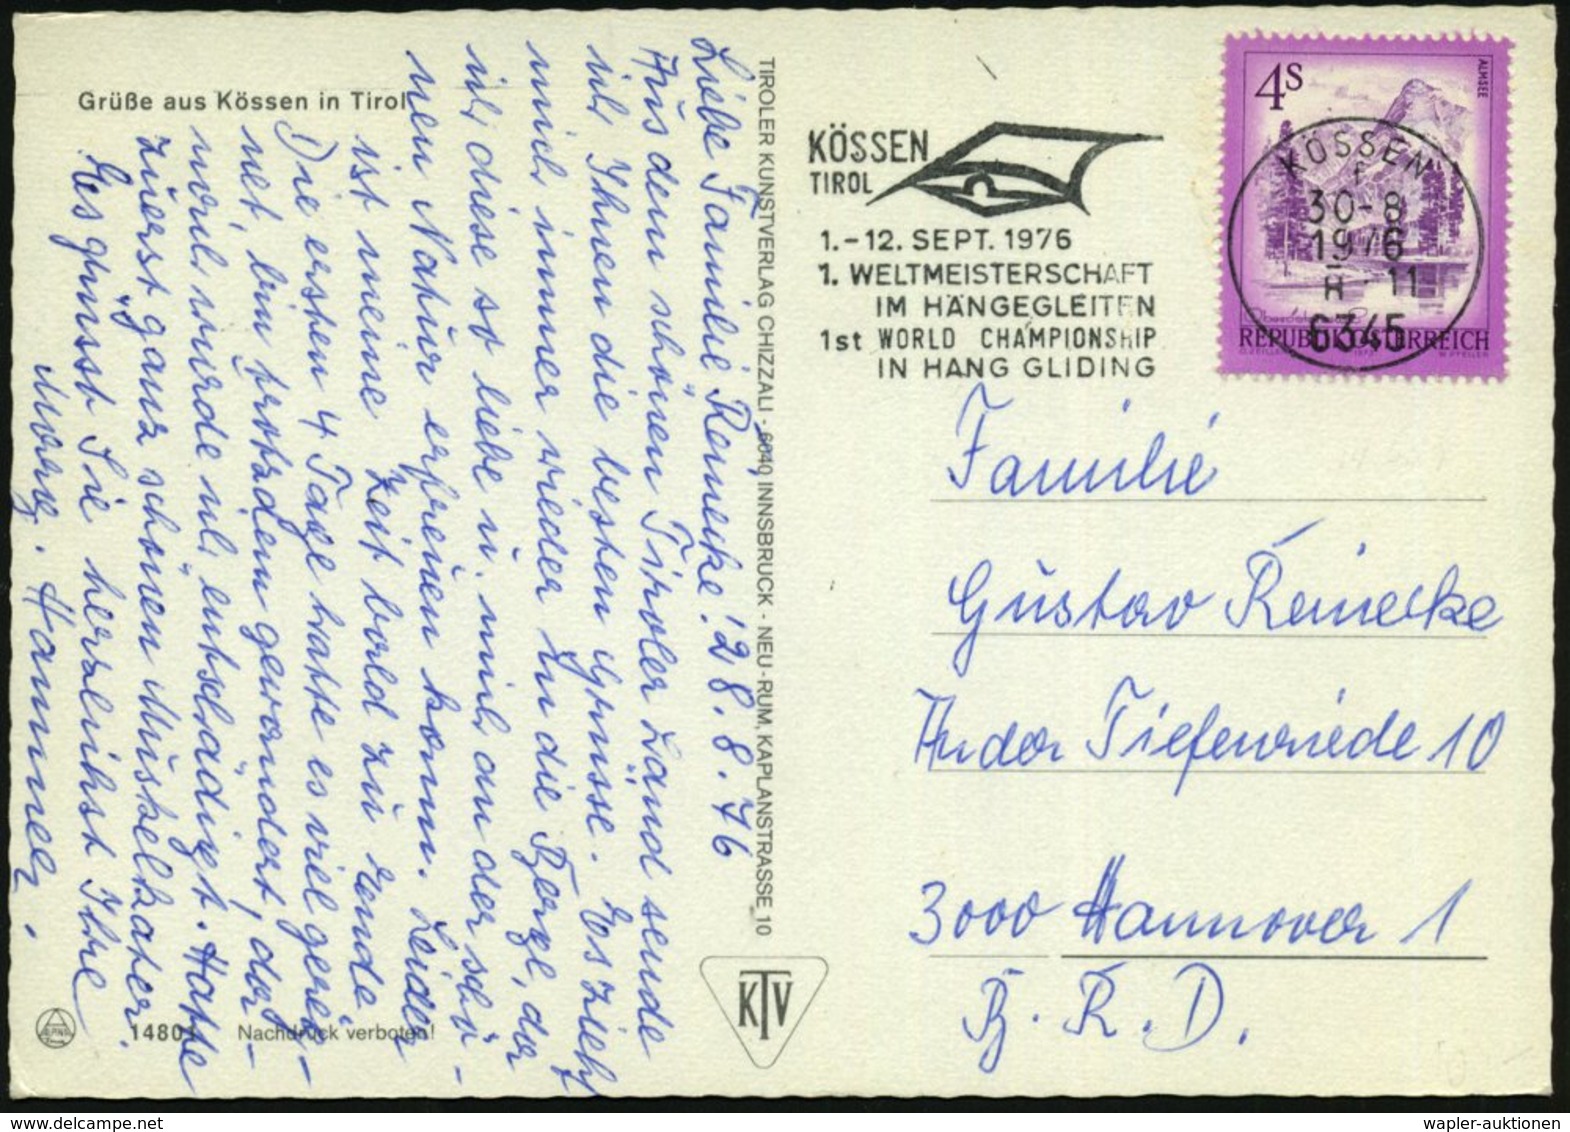 Grüße aus Kössen in Tirol
Liebe Familie Reinecke! 28.8.76
Aus dem schönen Tiroler Land sende
ich Ihnen die besten Grüsse. Es zieht
mich immer wieder in die Berge, da
ich diese so liebe u. mich an der schö-
nen Natur erfreuen kann. Leider
ist meine Zeit bald zu Ende
Die ersten 4 Tage hatte es viel gereg-
net, bin trotzdem gewandert, der-
weil wurde ich "entschädigt. Hatte
zuerst ganz schönen Muskelkater.
Es grüsst Sie herzlichst Ihre
Hammer.
TIROLER KUNSTVERLAG CHIZZALI - 6040 INNSBRUCK - NEU-RUM, KAPLANSTRASSE 10
KTV
14801 Nachdruck verboten!
KÖSSEN
TIROL
1.-12. SEPT. 1976
1. WELTMEISTERSCHAFT
IM HÄNGEGLEITEN
1st WORLD CHAMPIONSHIP
IN HANG GLIDING
4S
ALMSEE
REPUBLIK ÖSTERREICH
KÖSSEN
f
30-8
1976
11
6345
Familie
Gustav Reinecke
An der Tiefenriede 10
3000 Hannover 1
B.R.D.
wapler-auktionen